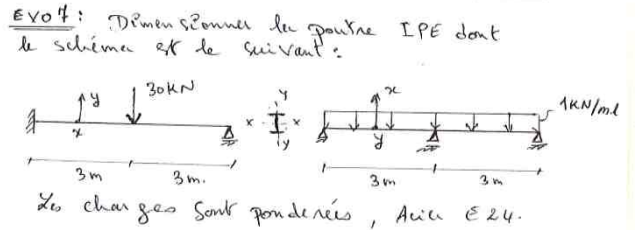 Exo 7 : Dimensionner la poutre IPE dont
le schéma est le suivant :
y 30KN y x 1KN/ml
x x x y y
3m 3m. 3m 3m
Les charges sont ponderées, Acier E24.